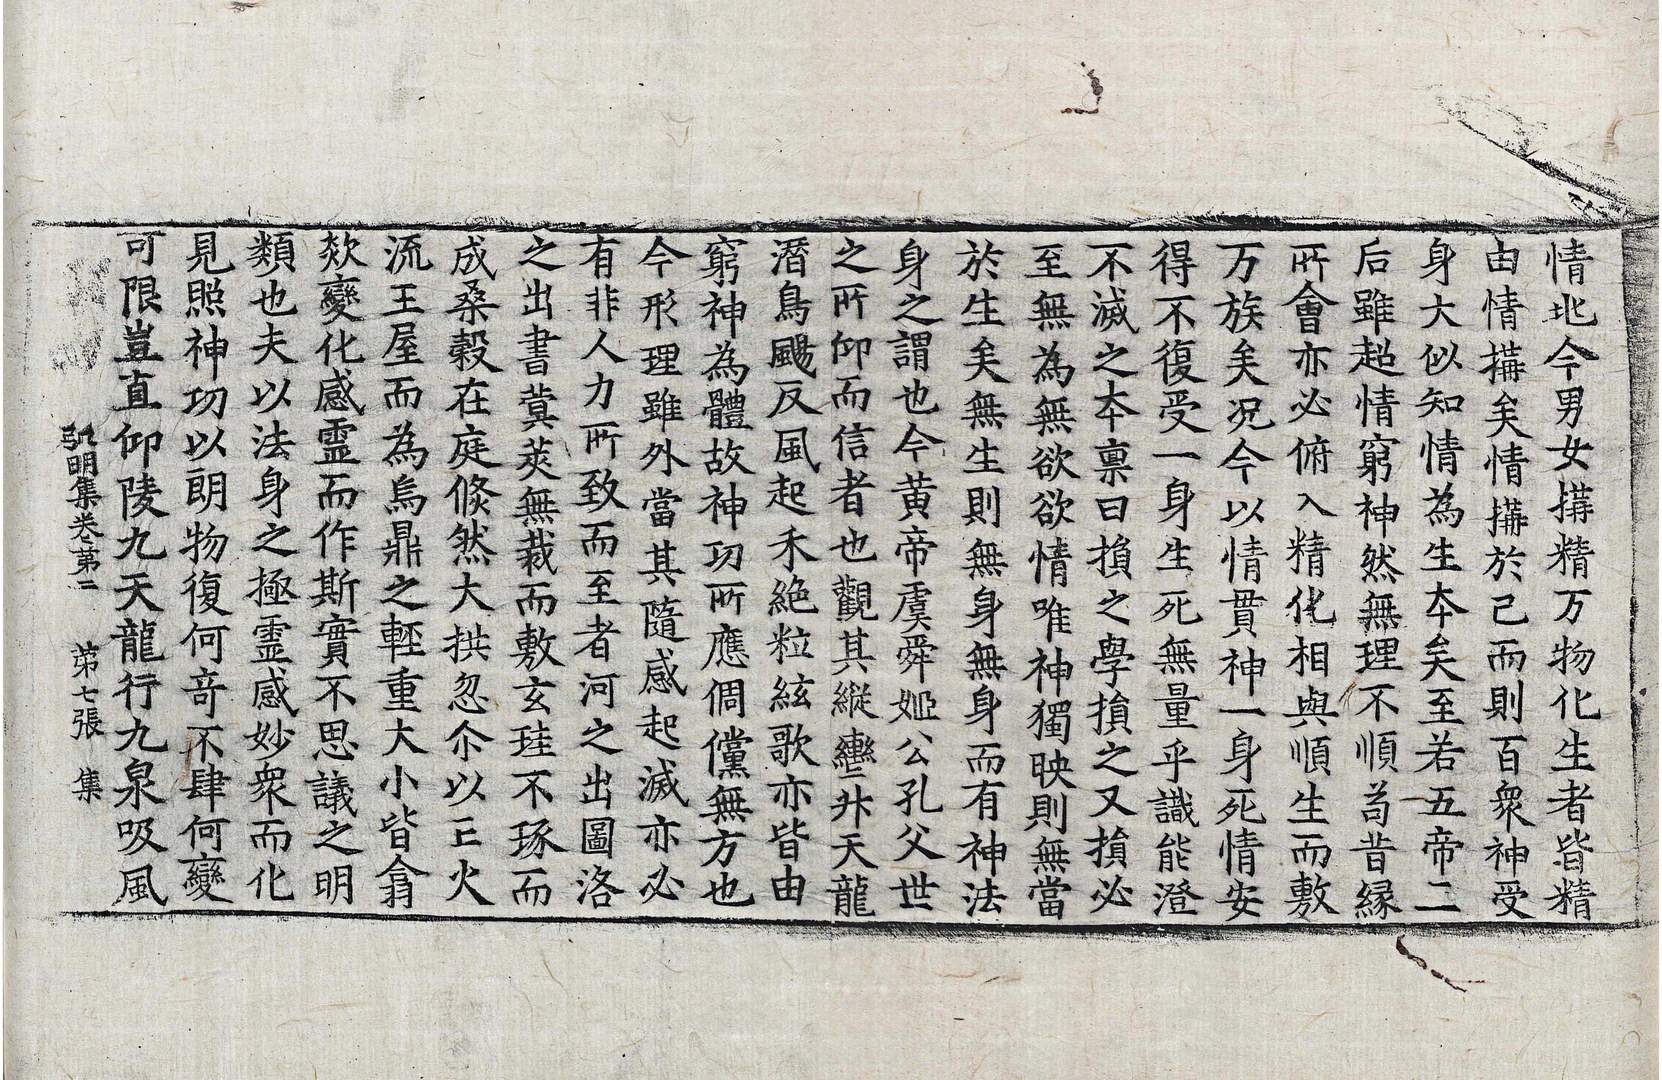 情地今男女搆精万物化生者皆精
由情搆矣情搆於己而則百衆神受
身大似知情為生夲矣至若五帝二
后雖超情窮神然無理不順苟昔縁
所會亦必俯入精化相與順生而敷
万族矣况今以情貫神一身死情安
得不復受一身生死無量乎識能澄
不滅之夲稟日損之學損之又損必
至無為無欲欲情唯神獨映則無當
於生矣無生則無身無身而有神法
身之謂也今黄帝虞舜姬公孔父世
之所仰而信者也觀其縱轡升天龍
潛鳥颺反風起禾絶粒絃歌亦皆由
窮神為體故神功所應倜儻無方也
今形理雖外當其隨感起滅亦必
有非人力所致而至者河之出圖洛
之出書蓂莢無栽而敷玄珪不琢而
成桑穀在庭倐然大拱忽尒以亡火
流王屋而為烏鼎之輕重大小皆翕
欻變化感霊而作斯實不思議之明
類也夫以法身之極霊感妙衆而化
見照神功以朗物復何竒不肆何變
可限豈直仰陵九天龍行九泉吸風
弘明集卷第二 第七張 集